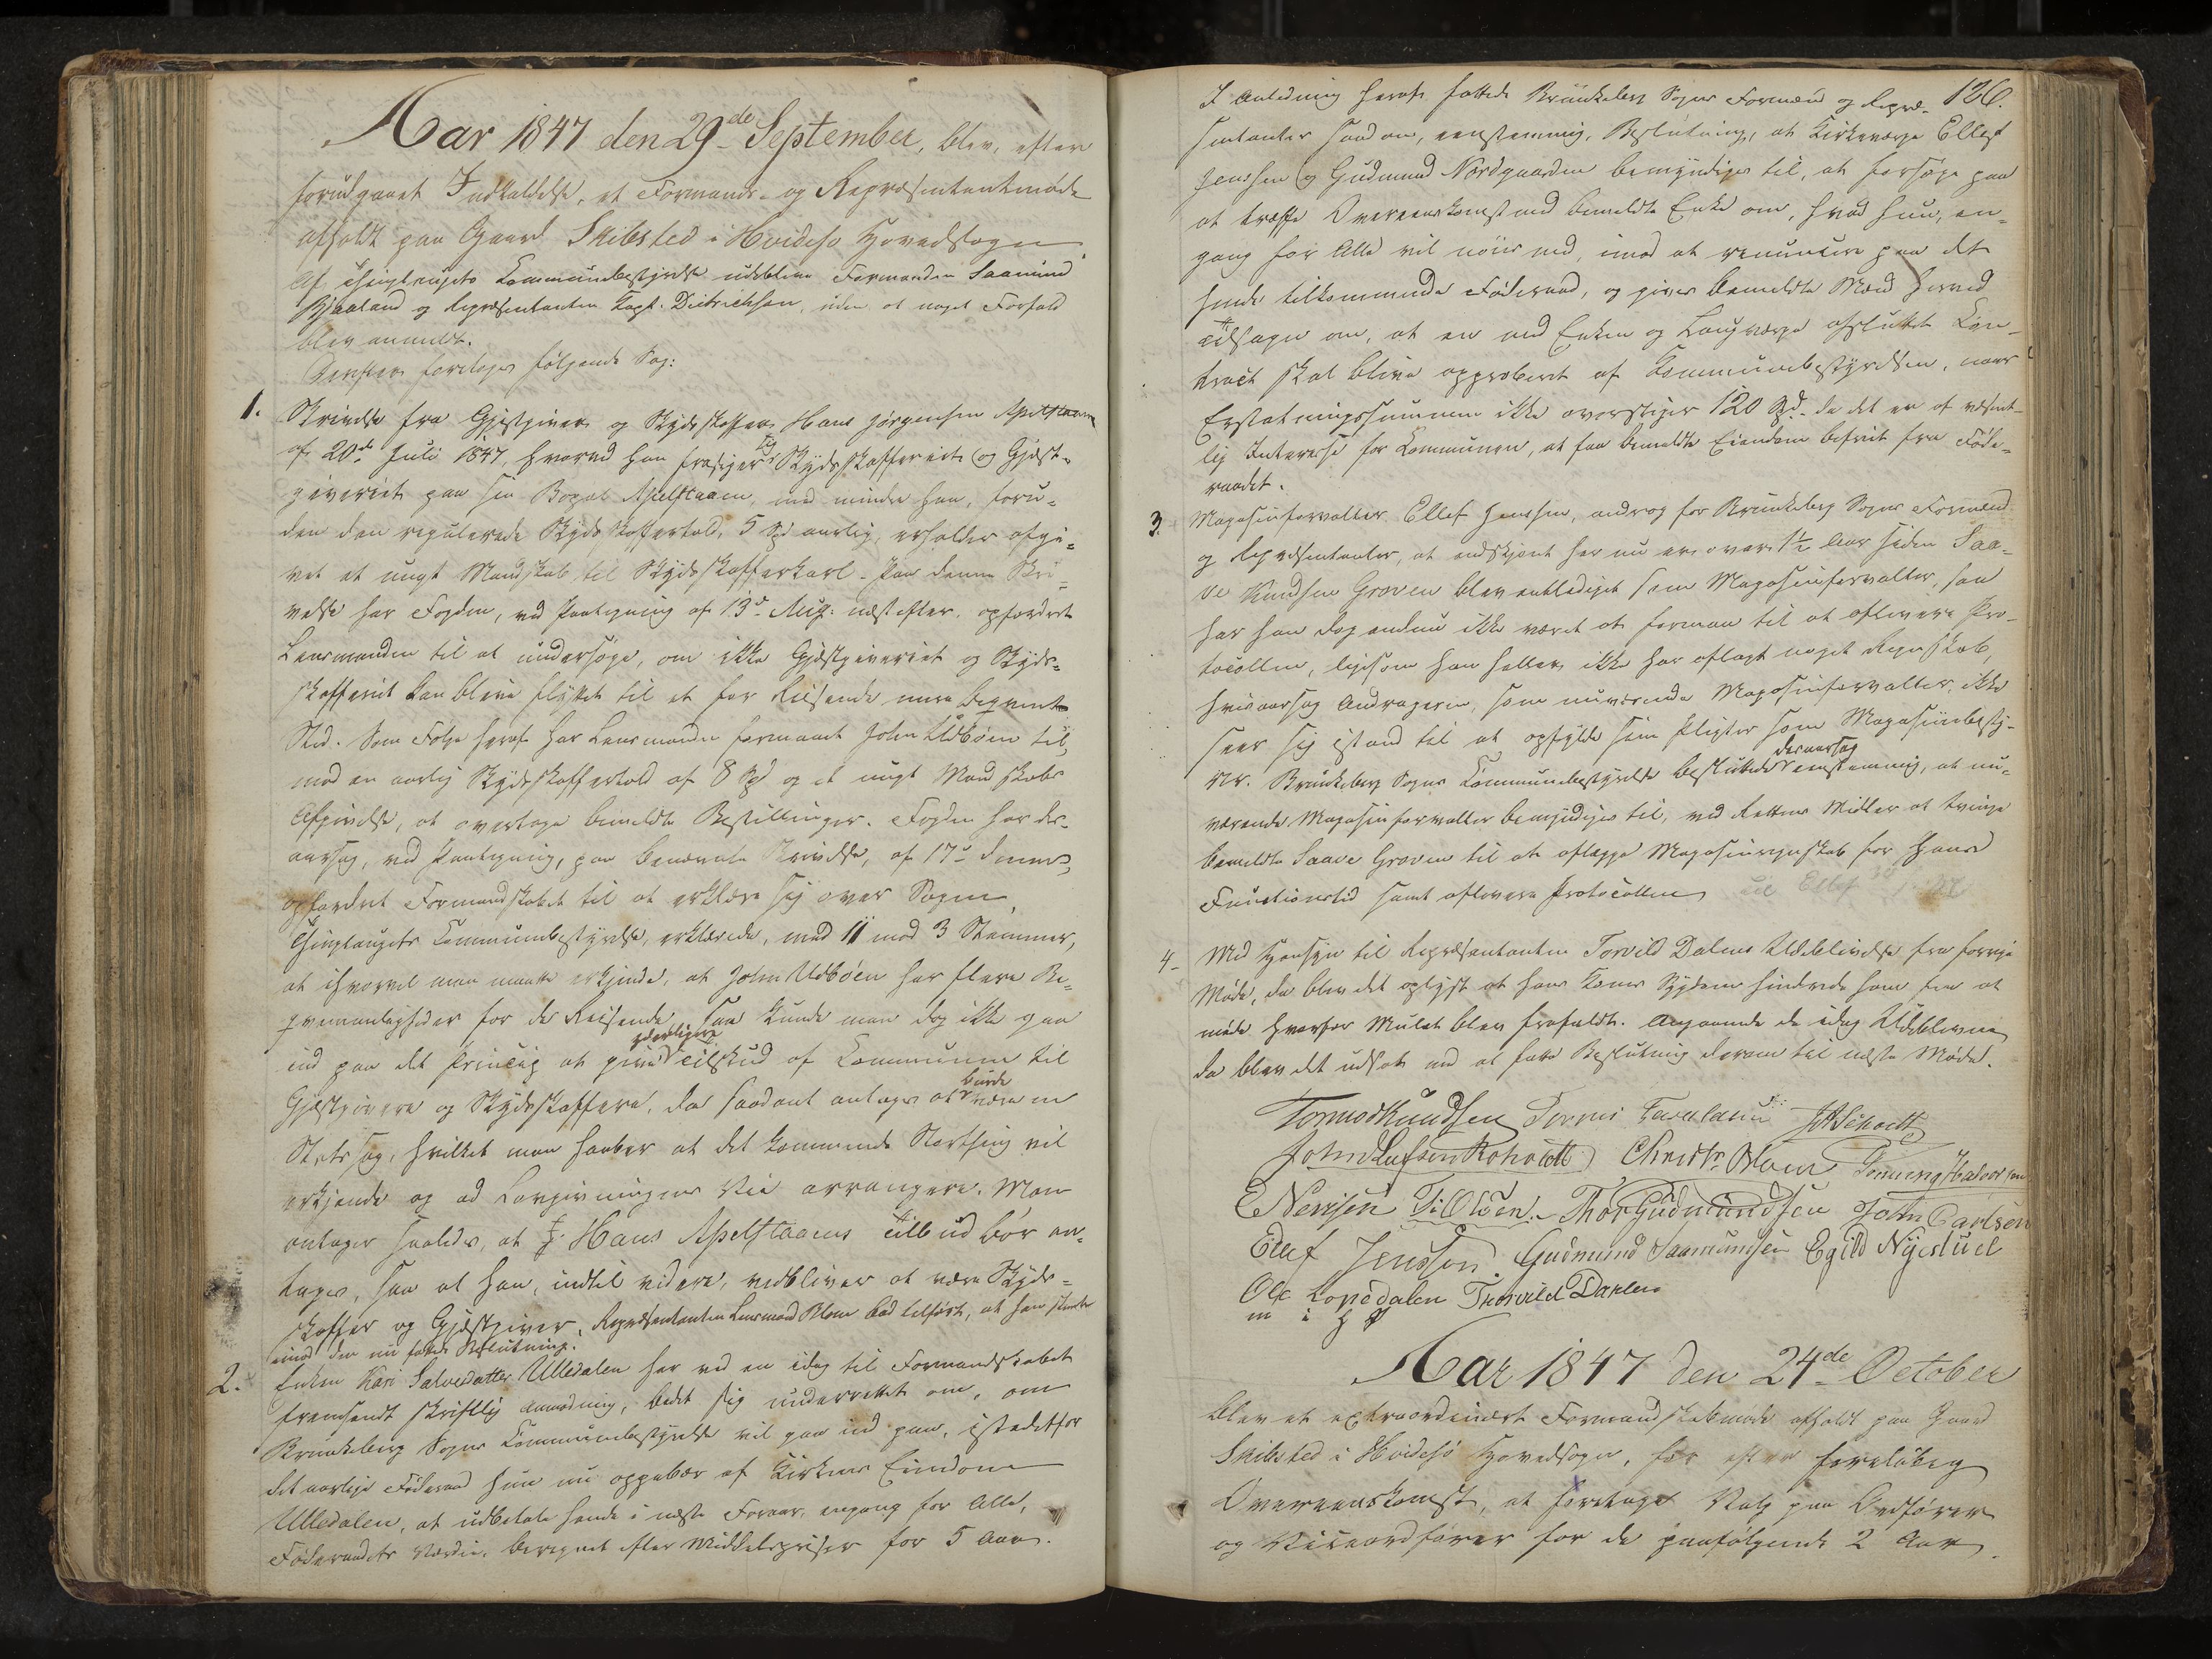 Aar 1847 den 29de September, blev, efter
forudgaaet Indkaldelse, et Formands- og Repræsentantmøde
afholdt paa Gaard Skibsted i Hvideseø Hovedsogn.
Af Thinglaugets Communebestyrelse udebleve Formanden Saamund
Bjaaland og Repræsentanten Capt. Dietrichson, uden at noget Forfald
blev anmeldt.
Derefter foretoges følgende Sag:
1. Skrivelse fra Gjestgiver og Skydsskaffer Hans Jørgensen Apelstaaen
af 20de Juli 1847, hvorved han frasiger sig Skydsskafferiet og Gjæst-
giveriet paa sin Bopæl Apelstaaen, med mindre han, foru-
den den regulerede Skydsskaffertold, 5 Spd aarlig, erholder afgi-
vet et ungt Mandskab til Skydsskafferkarl. Paa denne Skri-
velse har Fogden, ved Paategning af 13de Aug. næstefter, opfordret
Lensmanden til at undersøge, om ikke Gjæstgiveriet og Skyds-
skafferiet kan blive flyttet til et for Reisende mere beqvemt
Sted. Som Følge heraf har Lensmanden formaaet John Udbøen til,
mod en aarlig Skydsskaffertold af 8 Spd og et ungt Mandskabs
Afgivelse, at overtage bemeldte Bestillinger. Fogden har der-
aarsag, ved Paategning, paa benævnte Skrivelse, af 17de dennes,
opfordret Formandskabet til at erklære sig over Sagen.
Thinglaugets Communebestyrelse, erklærede, med 11 mod 3 Stemmer,
at ihvorvel man maatte erkjende, at John Udbøen har flere Be-
qvemmeligheder for de Reisende, saa kunde man dog ikke gaa
ind paa det Princip at give yderligere Tilskud af Communen til
Gjæstgivere og Skydsskaffere, da saadant antages at burde være en
Statssag, hvilket man haaber at det kommende Storthing vil
erkjende og ad Lovgivningens Vei arrangere. Man
antager saaledes, at Hans Apelstaaens Tilbud bør an-
tages, saa at han, indtil videre, vedbliver at være Skyds-
skaffer og Gjæstgiver. Repræsentanten Lensmand Blom bad tilført, at han stemte
imod den nu fattede Beslutning.
2. Enken Kari Salvesdatter Ulledalen har ved en idag til Formandskabet
fremsendt skriftlig Anmodning, bedet sig underrettet om, om
Brunkeberg Sogns Communebestyrelse vil gaa ind paa, istedetfor
det aarlige Føderaad hun nu oppebær af Kirkens Eiendom
Ulledalen, at udbetale hende i næste Foraar, engang for Alle,
Føderaadets Værdie, beregnet efter Middelspriser for 5 Aar.
126.
I Anledning heraf fattede Brunkeberg Sogns Formænd og Repræ-
sentanter saadan, eenstemmig, Beslutning, at Kirkeværge Ellef
Jenssen og Gudmund Nordgaarden bemyndiges til, at forsøge paa
at træffe Overeenskomst med bemeldte Enke om, hvad hun, en-
gang for Alle vil nøies med, imod at renuncere paa det
hende tilkommende Føderaad, og gives bemeldte Mænd herved
Tilsagn om, at en med Enken og Laugværge afsluttet Con-
tract skal blive approberet af Communebestyrelsen, naar
Erstatningssummen ikke overstiger 120 Spd. da det er af væsent-
lig Interesse for Communen, at faa bemeldte Eiendom befriet fra Føde-
raadet.
3. Magasinforvalter Ellef Jenssen, androg for Brunkeberg Sogns Formænd
og Repræsentanter, at endskjønt her nu er over 1½ Aar siden Saa-
ve Knudsen Groven blev entlediget som Magasinforvalter, saa
har han dog endnu ikke været at formaa til at aflevere Pro-
tocollen, ligesom han heller ikke har aflagt noget Regnskab,
hvisaarsag Andrageren, som nuværende Magasinforvalter, ikke
seer sig istand til at opfylde sine Pligter som Magasinbesty-
rer. Brunkeberg Sogns Communebestyrelse besluttede deraarsag eenstemmig, at nu-
værende Magasinforvalter bemyndiges til, ved Rettens Midler at tvinge
bemeldte Saave Groven til at aflægge Magasinregnskab for hans
Functionstid samt aflevere Protocollen til Ellef
4. Med Hensyn til Repræsentanten Torvild Dalens Udeblivelse fra forrige
Møde, da blev det oplyst at hans Kones Sygdom hindrede ham fra at
møde hvorfor Mulct blev frafaldt. Angaaende de idag Udeblevne
da blev det udsat med at fatte Beslutning derom til næste Møde.
Tormod Knudsen JASchødt
John Leifsen Roholdt Christn Blom Tonning Halvorsen
E Nenssen T: Olsen. Thor Gudmundsen John Carlsen
Ellef Jenssen. Gudmund Saamundsen Egild Nyestuel
Ole Lonedalen Thorvild Dahlen
m i H P
Aar 1847 den 24de October
blev et extraordinært Formandskabsmøde afholdt paa Gaard
Skibsted i Hvideseø Hovedsogn, for efter foreløbig
Overeenskomst, at foretage Valg paa Ordfører
og Viceordfører for de paafølgende 2 Aar.